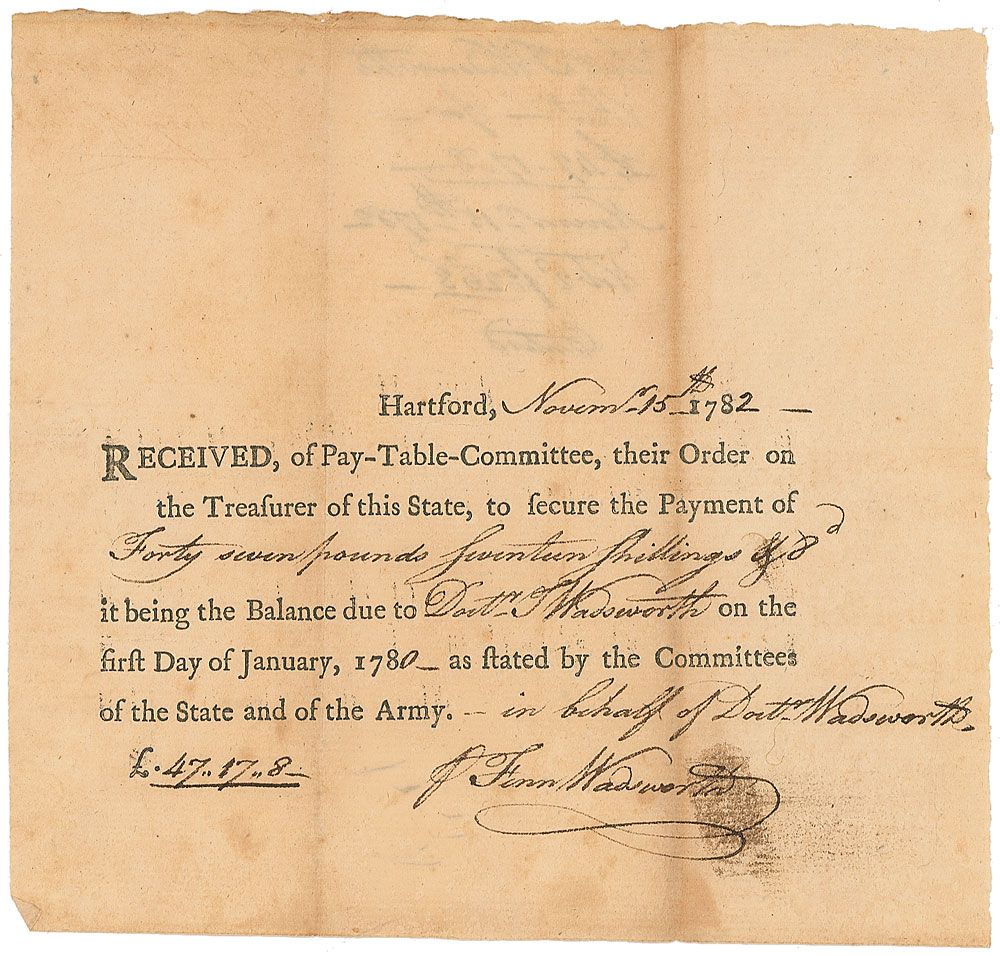 Hartford, Novemr 15th 1782 —
RECEIVED, of Pay-Table-Committee, their Order on
the Treaſurer of this State, to ſecure the Payment of
Forty seven pounds Seventeen Shillings & 8d
it being the Balance due to Doctr Wadsworth on the
firſt Day of January, 1780 — as ſtated by the Committees
of the State and of the Army. — in behalf of Doctr Wadsworth
£. 47..17..8 —
Fenn Wadsworth